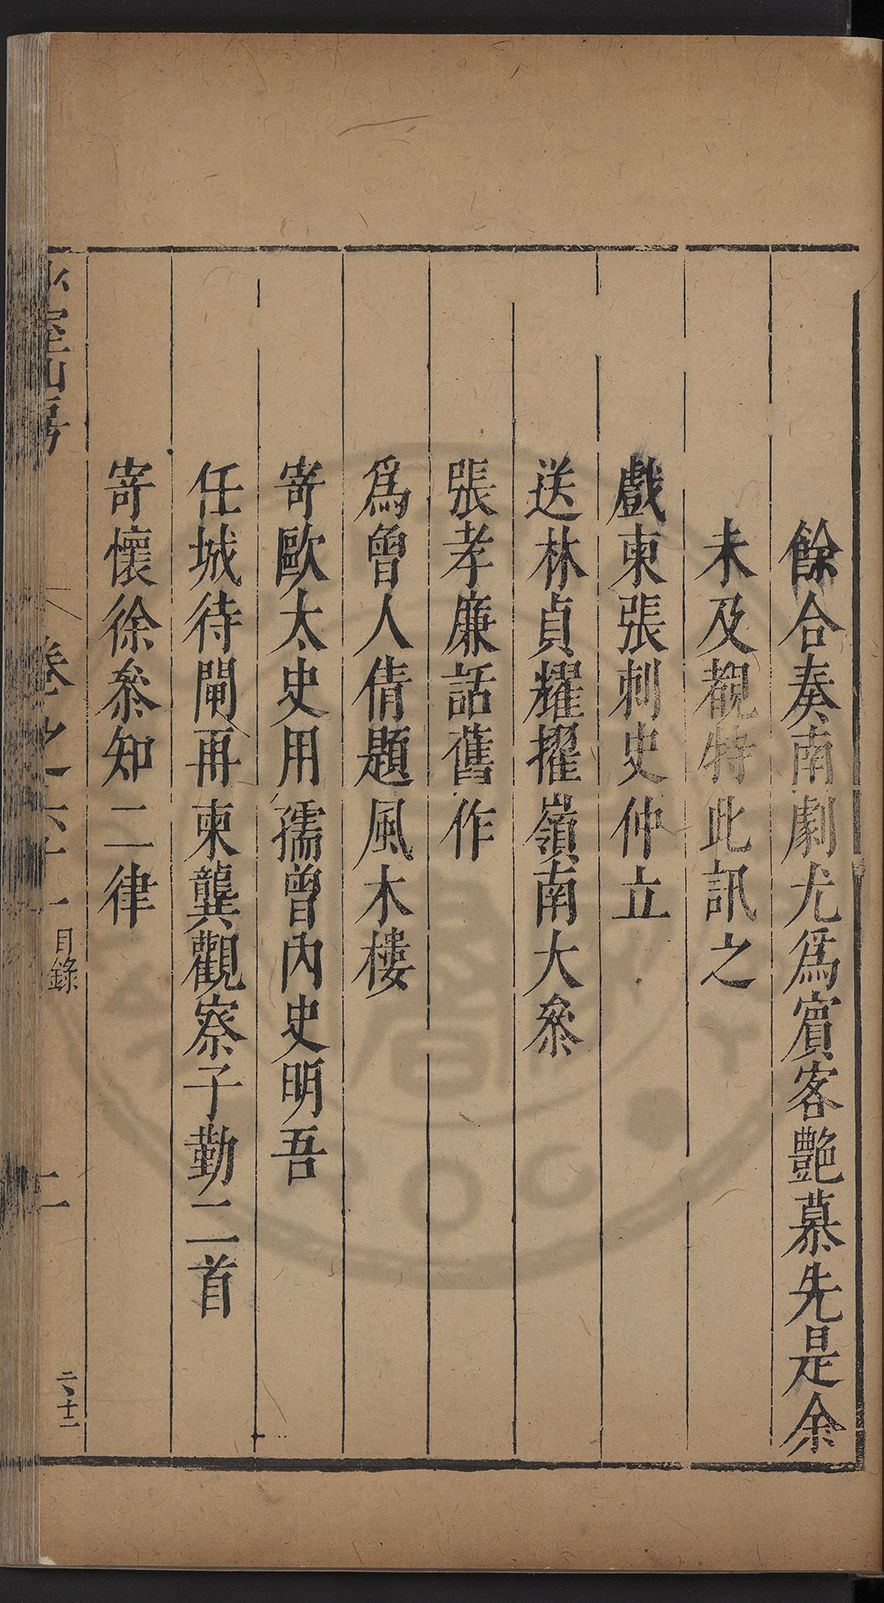 餘合奏南劇尤爲賓客艷慕先是余
未及覩特此訊之
戲柬張刺史仲立
送林貞耀擢嶺南大叅
張孝廉話舊作
爲曾人倩題風木樓
寄歐太史用孺曾內史明吾
任城待閘再柬龔觀察子勤二首
寄懷徐叅知二律
少室山房
卷之六十一
目錄
二
二、十二